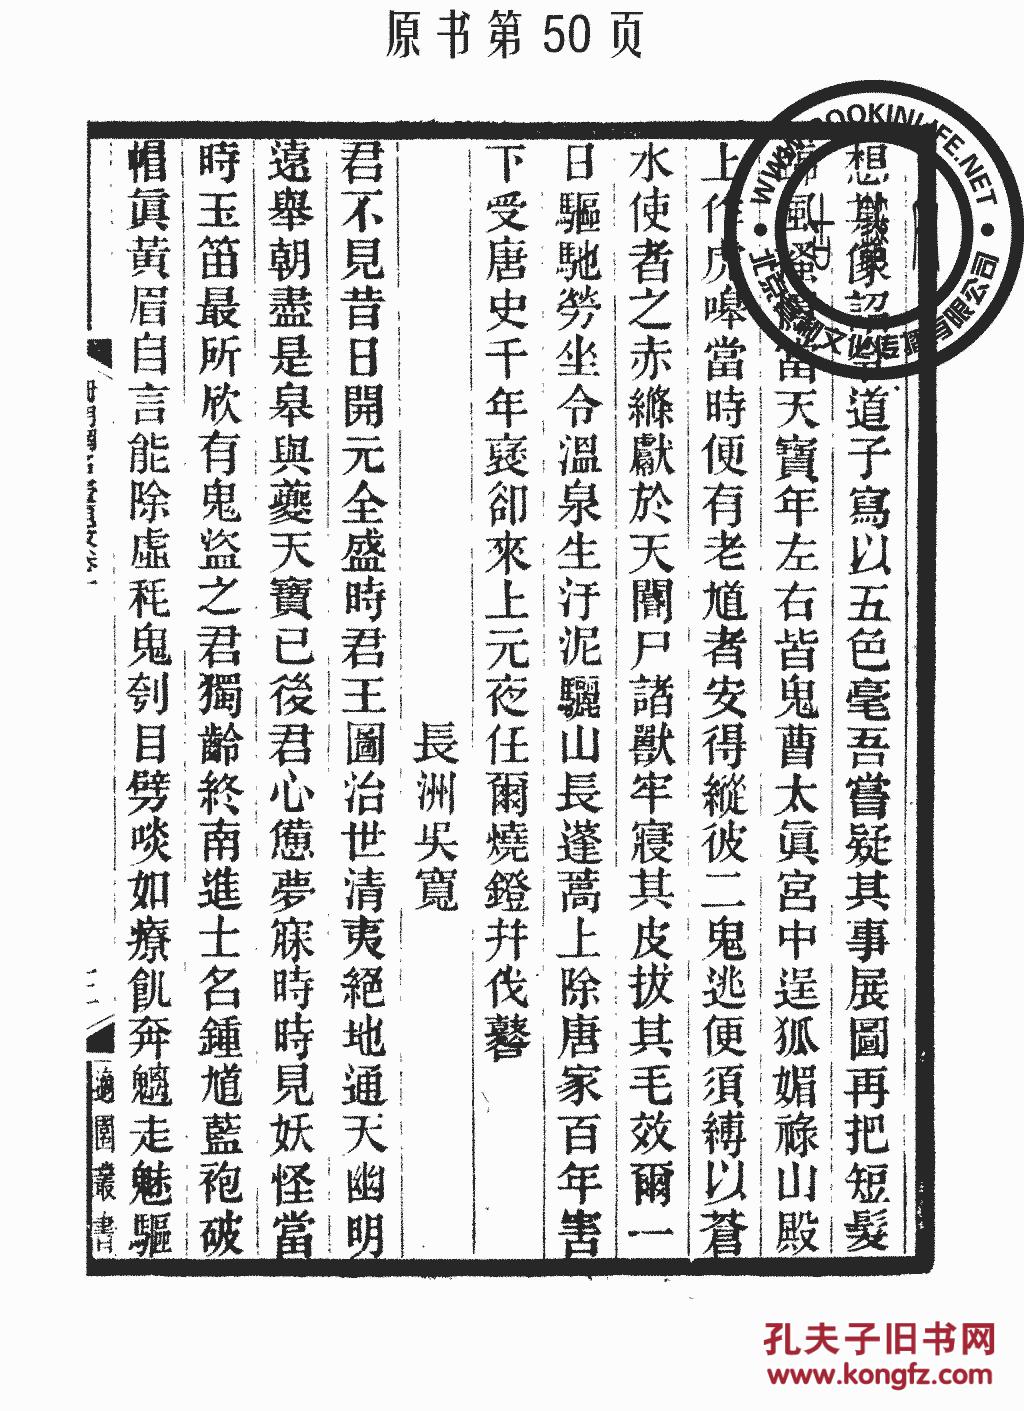 原书第50页
想其像認是道子寫以五色毫吾嘗疑其事展圖再把短髮
風當天寶年左右皆鬼曹太眞宮中逞狐媚祿山殿
上作虎嗥當時便有老馗者安得縱彼二鬼逃便須縛以蒼
水使者之赤縧獻於天閽尸諸獸牢寢其皮拔其毛效爾一
日驅馳勞坐令溫泉生汙泥驪山長蓬蒿上除唐家百年害
下受唐史千年褒卻來上元夜任爾燒鐙幷伐鼛
長洲吳寬
君不見昔日開元全盛時君王圖治世清夷絕地通天幽明
遠舉朝盡是皋與夔天寶已後君心憊夢寐時時見妖怪當
時玉笛最所欣有鬼盜之君獨齡終南進士名鍾馗藍袍破
帽眞黃眉自言能除虛耗鬼刳目劈啖如療飢奔魑走魅驅
適園叢書
WWW.BOOKINLIFE.NET
孔夫子旧书网
www.kongfz.com